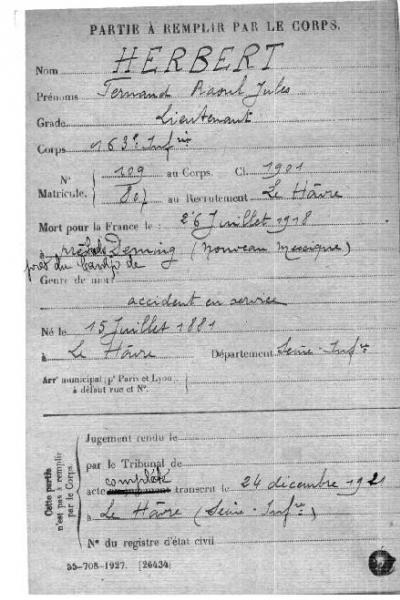 PARTIE À REMPLIR PAR LE CORPS.
Nom HERBERT
Prénoms Fernand Raoul Jules
Grade Lieutenant
Corps 163e Inf rie
N° 109 au Corps. Cl. 1901
Matricule. 807 au Recrutement Le Hâvre
Mort pour la France le : 26 Juillet 1918
à Deming (Nouveau Mexique)
près du Camp de
Genre de mort
accident en service
Né le 15 Juillet 1881
à Le Hâvre Département Seine-Infre
Arr' municipal (p' Paris et Lyon,
à défaut rue et N°.
Cette partie
n'est pas à remplir
par le Corps.
Jugement rendu le
par le Tribunal de
complété
acte transcrit le 24 décembre 1921
à Le Hâvre (Seine-Infre)
N° du registre d'état civil
35-708-1927. [26434]